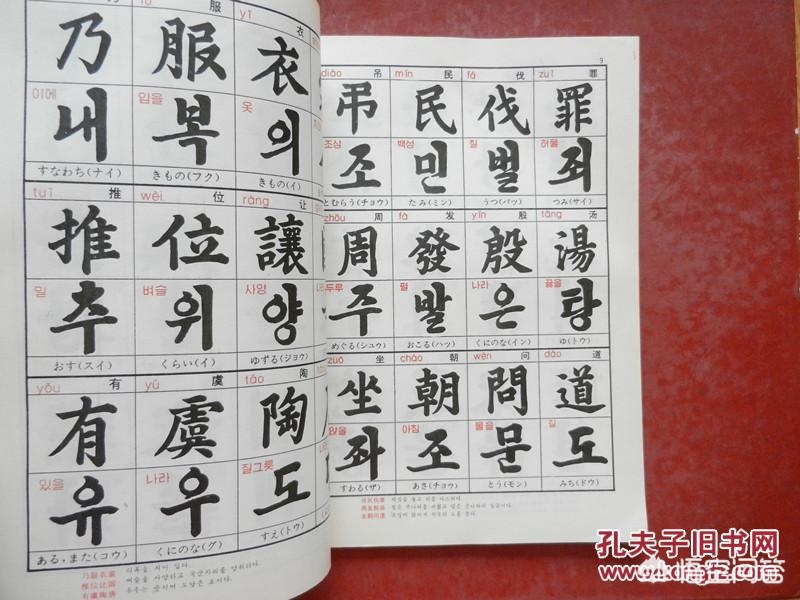 服 yī 衣
乃 服 衣
이에 입을 옷
내 복 의
すなわち(ナイ) きもの(フク) きもの(イ)
tuī 推 wèi 位 ràng 让
推 位 讓
밀 벼슬 사양
추 위 양
おす(スイ) くらい(イ) ゆずる(ジョウ)
yǒu 有 yú 虞 táo 陶
有 虞 陶
있을 나라 질그릇
유 우 도
ある,また(コウ) くにのな(グ) すえ(トウ)
乃服衣裳 의복을 지어 입다.
推位让国
有虞陶唐
9
diào 吊 mín 民 fá 伐 zuì 罪
弔 民 伐 罪
조상 백성 칠 허물
조 민 벌 죄
とむらう(チョウ) たみ(ミン) うつ(バツ) つみ(サイ)
zhōu 周 fā 发 yīn 殷 tāng 汤
周 發 殷 湯
두루 펼 나라 끓을
주 발 은 탕
めぐる(シュウ) おこる(ハツ) くにのな(イン) ゆ(トウ)
zuò 坐 cháo 朝 wèn 问 dào 道
坐 朝 問 道
앉을 아침 물을 길
좌 조 문 도
すわる(ザ) あき(チョウ) とう(モン) みち(ドウ)
吊民伐罪
周发殷汤
坐朝问道
孔夫子旧书网
悟空问答